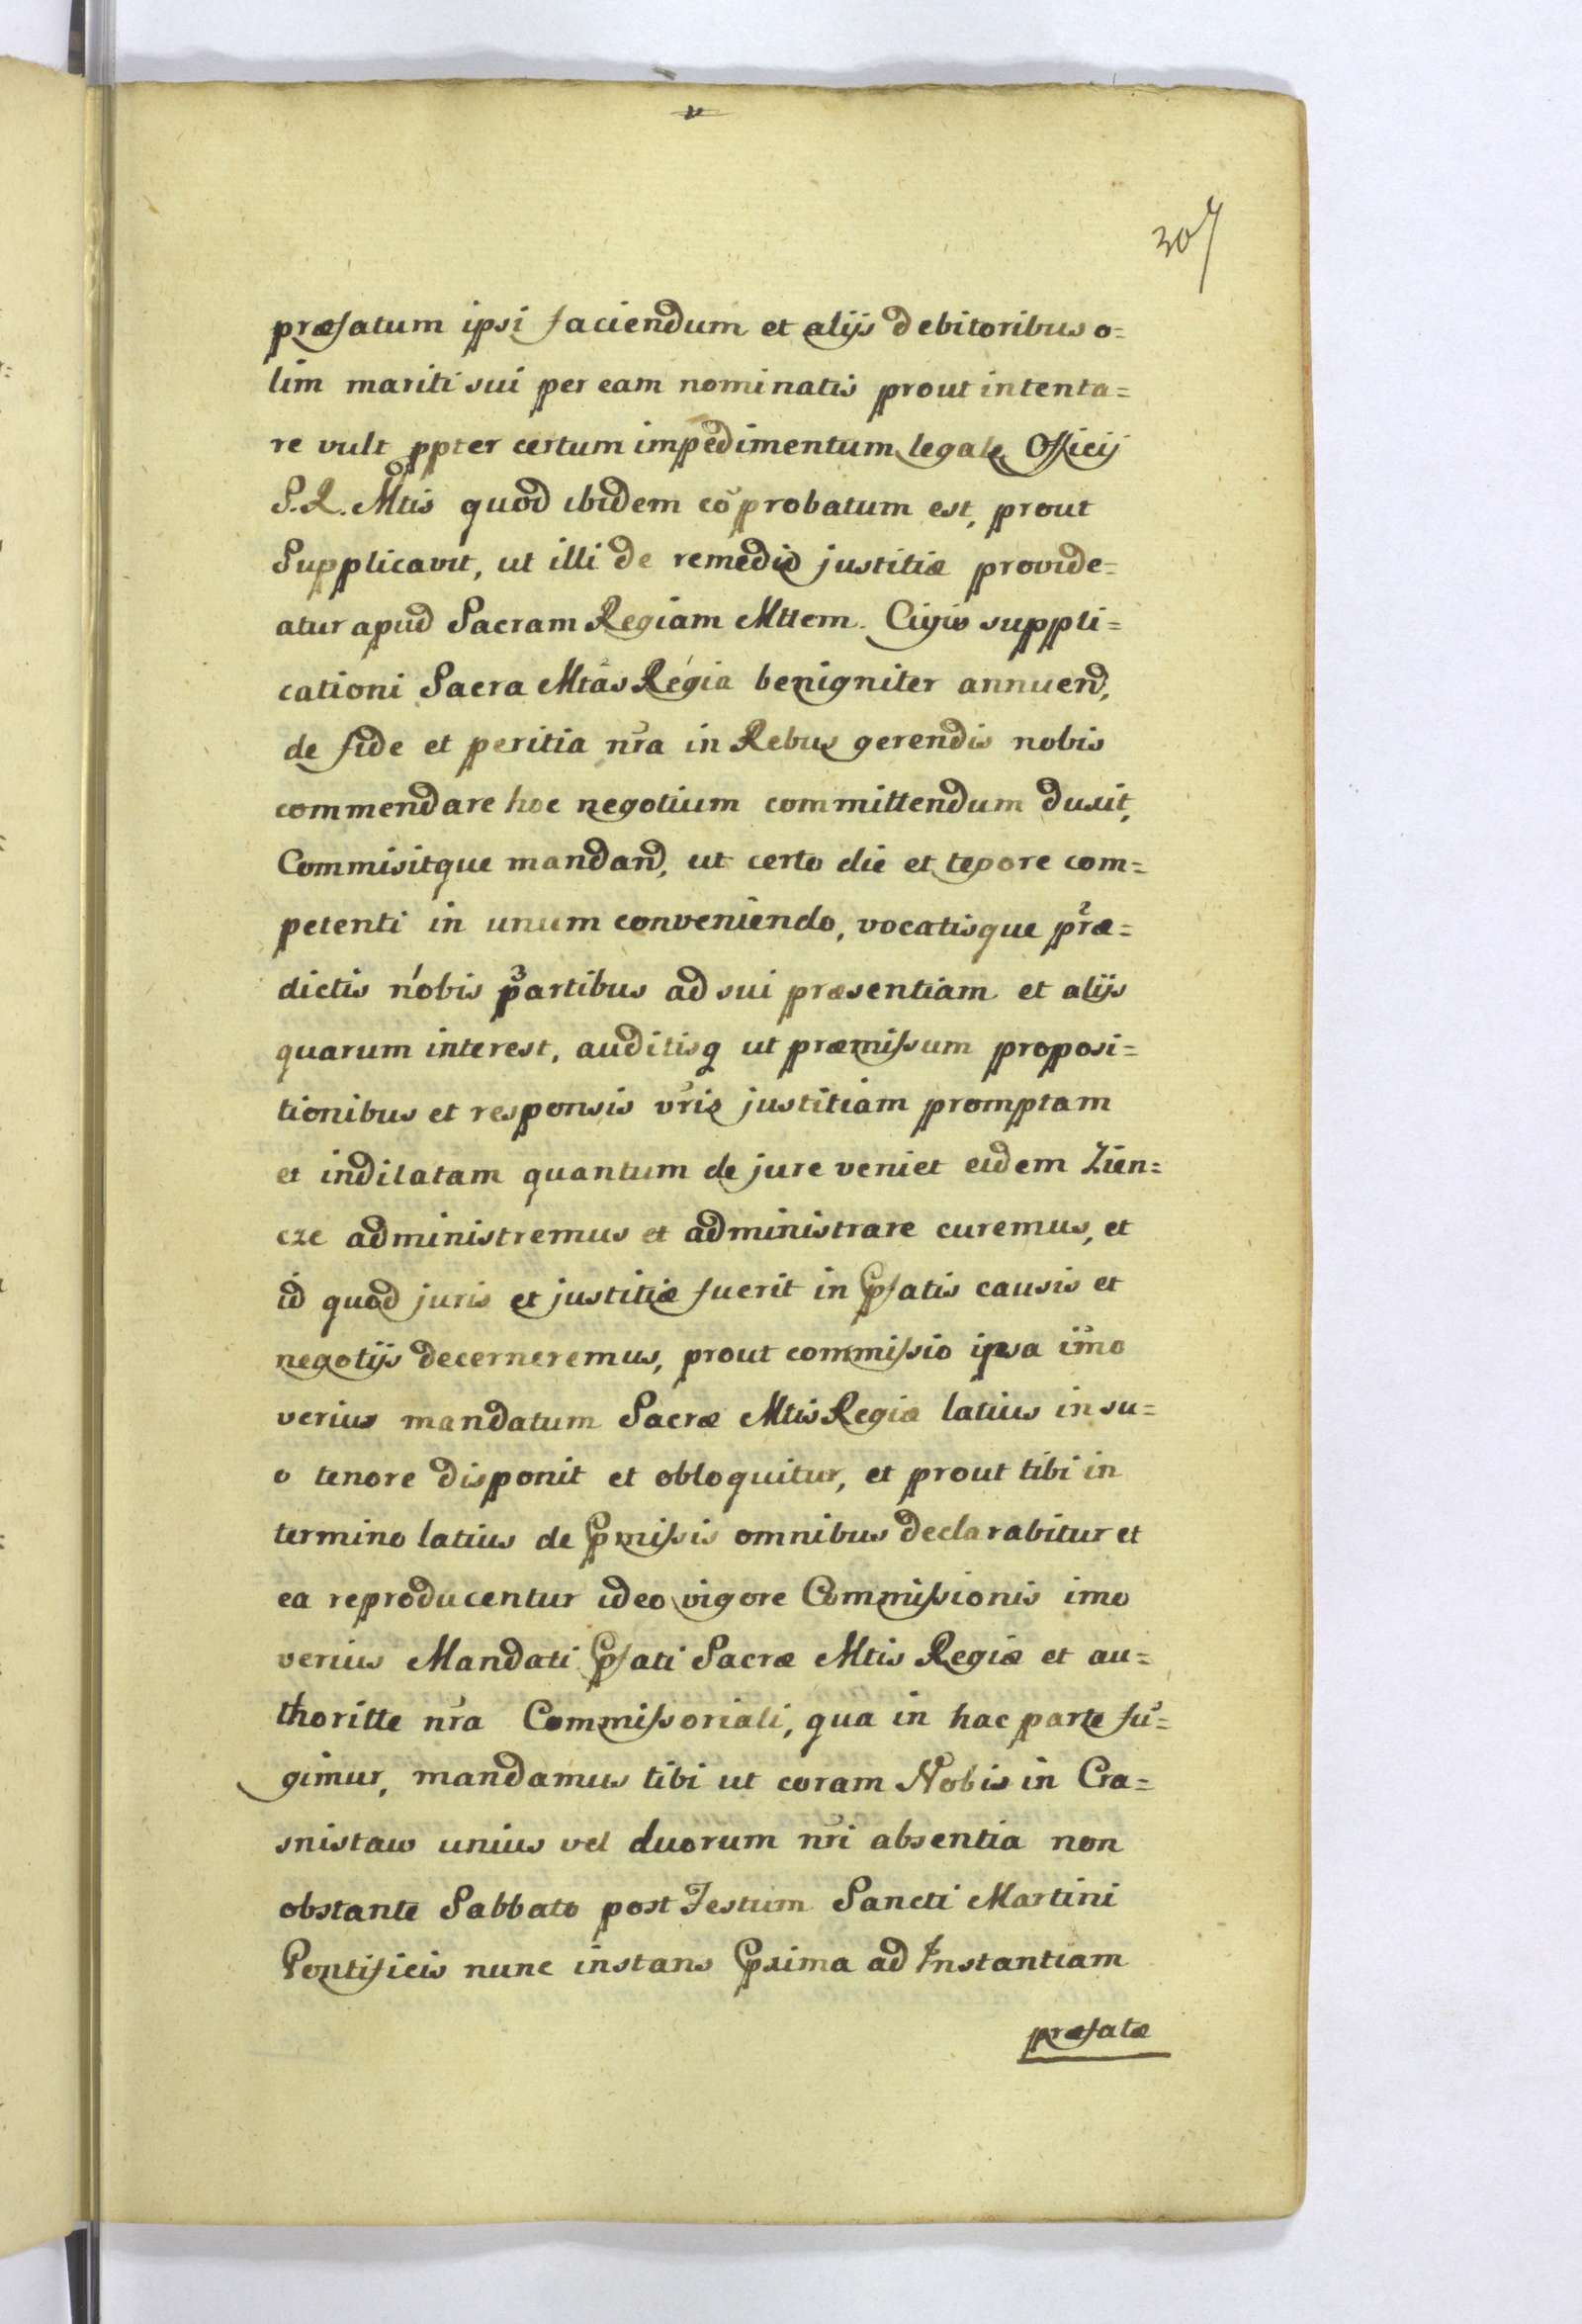 307
præfatum ipsi faciendum et alijs debitoribus o=
lim mariti sui per eam nominatis prout intenta=
re vult ppter certum impedimentum legale Officij
S.R. Mtis quod ibidem cõprobatum est, prout
Supplicavit, ut illi de remedio justitiæ provide=
atur apud Sacram Regiam Mttem. Cujus suppli=
cationi Sacra Mtãs Regia benigniter annuend,
de fide et peritia nr̃a in Rebus gerendis nobis
commendare hoc negotium committendum duxit,
Commisitque mandand, ut certo die et tepore com=
petenti in unum conveniendo, vocatisque præ=
dictis nobis partibus ad sui præsentiam et alijs
quarum interest, auditisq ut præmissum proposi=
tionibus et responsis vr̃is justitiam promptam
et indilatam quantum de jure veniet eidem Zien=
cze administremus et administrare curemus, et
id quod juris et justitiæ fuerit in Pfatis causis et
negotijs decerneremus, prout commissio ipsa im̃o
verius mandatum Sacræ Mtis Regiæ latius in su=
o tenore disponit et obloquitur, et prout tibi in
termino latius de Pmissis omnibus declarabitur et
ea reproducentur ideo vigore Commissionis imo
verius Mandati Pfati Sacræ Mtis Regiæ et au=
thoritte nr̃a Commissoriali, qua in hac parte fũ=
gimur, mandamus tibi ut coram Nobis in Cra=
snistaw unius vel duorum nr̃i absentia non
obstante Sabbato post Festum Sancti Martini
Pontificis nunc instans Pxima ad Instantiam
præfatæ